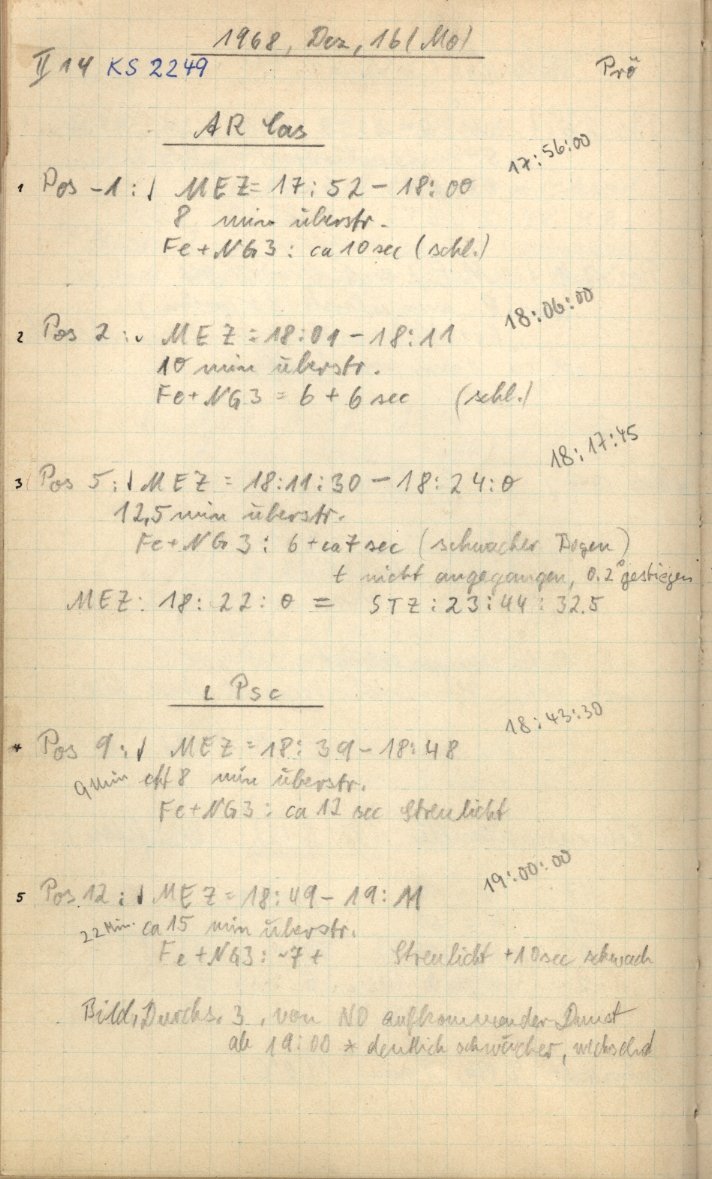 1968, Dez, 16 (Mo)
II 14 KS 2249 Prö
AR Cas
17:56:00
1 Pos -1: √ MEZ = 17:52 - 18:00
8 min überstr.
Fe+NG3: ca 10 sec (schl.)
18:06:00
2 Pos 2: √ MEZ = 18:01 - 18:11
10 min überstr.
Fe+NG3 = 6 + 6 sec (schl.)
18:17:45
3 Pos 5: √ MEZ = 18:11:30 - 18:24:0
12,5 min überstr.
Fe+NG3: 6 + ca 7 sec (schwacher Bogen)
t nicht angegangen, 0.2° gestiegen
MEZ: 18:22:0 = STZ: 23:44:32.5
ι Psc
18:43:30
4 Pos 9: √ MEZ = 18:39 - 18:48
9 Min eff 8 min überstr.
Fe+NG3: ca 12 sec Streulicht
19:00:00
5 Pos 12: √ MEZ = 18:49 - 19:11
22 Min. ca 15 min überstr.
Fe+NG3: ~7 + Streulicht +10sec schwach
Bild, Durchs. 3, von NO aufkommender Dunst
ab 19:00 * deutlich schwächer,